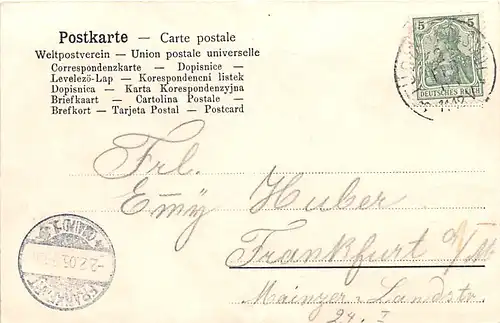 Postkarte — Carte postale
Weltpostverein — Union postale universelle
Correspondenzkarte — Dopisnice —
Levelező-Lap — Korespondencni listek
Dopisnica — Karta Korespondenzyjna
Briefkaart — Cartolina Postale —
Brefkort — Tarjeta Postal — Postcard
5 5
DEUTSCHES REICH
Frl.
Emmy Huber
Frankfurt a/M
Mainzer-Landstr.
24. I